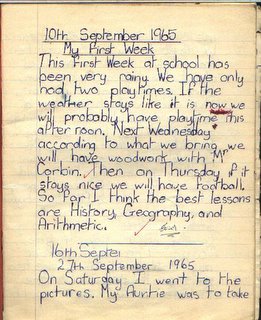 10th September 1965
My First Week
This First Week at school has
been very rainy. We have only
had two playtimes. If the
weather stays like it is now we
will probably have playtime this
afternoon. Next Wednesday
according to what we bring we
will have woodwork with Mr
Corbin. Then on Thursday if it
stays nice we will have football.
So far I think the best lessons
are History, Geography, and
Arithmetic.
16th Septe
27th September 1965
On Saturday I went to the
pictures. My Auntie was to take